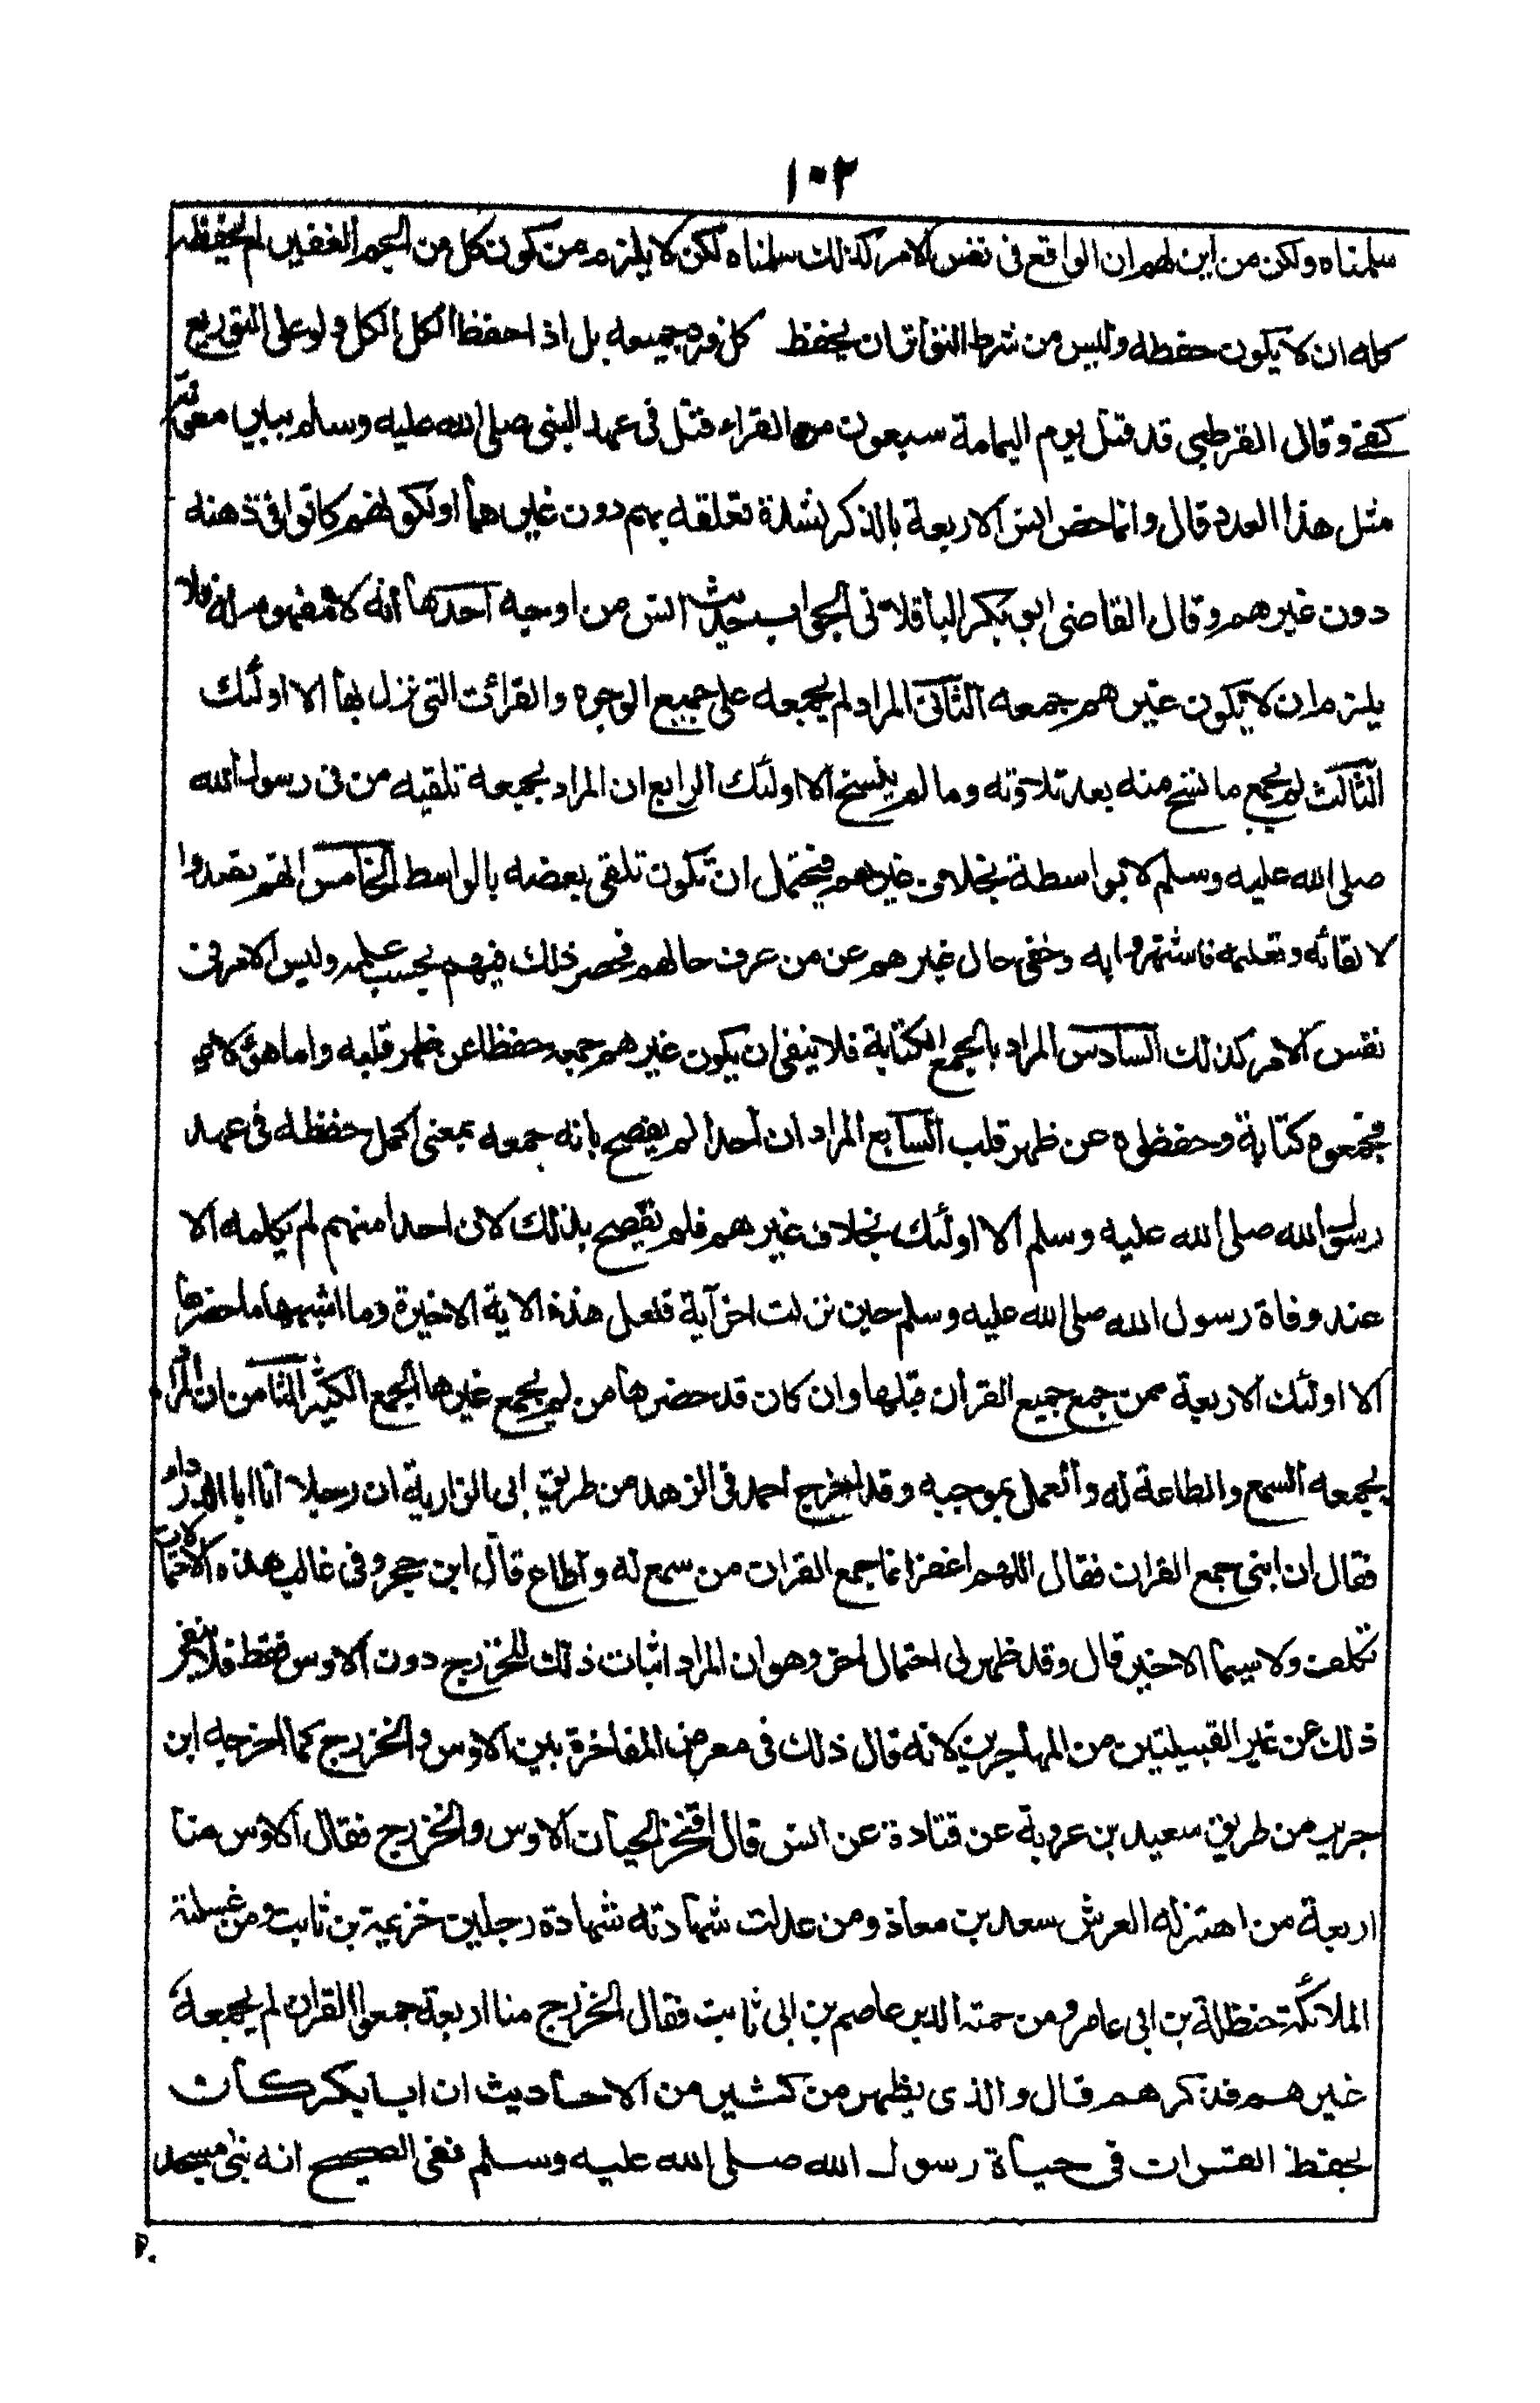 ١٠٢
سلمناه ولكن من اين لهم ان الواقع في نفس الامر كذلك سلمناه لكن لا يلزم من كون كل من الجم الغفير لم يحفظه
كله ان لا يكون حفظه وليس من شرط التواتر ان يحفظ كل فرد جميعه بل اذا حفظ الكل الكل ولو على التوزيع
كفى وقال القرطبي قد قتل يوم اليمامة سبعون من القراء وقتل في عهد النبي صلى الله عليه وسلم ببئر معونة
مثل هذا العدد قال وانما خص انس الاربعة بالذكر لشدة تعلقه بهم دون غيرهما او لكونهم كانوا في ذهنه
دون غيرهم وقال القاضي ابو بكر الباقلاني الجواب حديث انس من اوجه احدها انه لا مفهوم له فلا
يلزم ان لا يكون غيرهم جمعه الثاني المراد لم يجمعه على جميع الوجوه والقرائت التي نزل بها الا اولئك
الثالث لم يجمع ما نسخ منه بعد تلاوته وما لم ينسخ الا اولئك الرابع ان المراد بجمعه تلقيه من في رسول الله
صلى الله عليه وسلم لا بواسطة بخلاف غيرهم فيحتمل ان تكون تلقى بعضه بالواسط الخامس انهم تصدوا
لالقائه وتعليمه فاشتهروا به وخفي حال غيرهم عن من عرف حالهم فحصر ذلك فيهم بحسب علمه وليس الامر في
نفس الامر كذلك السادس المراد بالجمع الكتابة فلا ينفي ان يكون غيرهم جمعه حفظا عن ظهر قلبه واما هؤلاء
فجمعوه كتابة وحفظوه عن ظهر قلب السابع المراد ان احدا لم يفصح بانه جمعه بمعنى اكمل حفظه في عهد
رسول الله صلى الله عليه وسلم الا اولئك بخلاف غيرهم فلم يفصح بذلك لان احدا منهم لم يكلمه الا
عند وفاة رسول الله صلى الله عليه وسلم حين نزلت اخر آية فلعل هذه الاية الاخيرة وما اشبهها ما حضرها
الا اولئك الاربعة ممن جمع جميع القران قبلها وان كان قد حضرها من لم يجمع غيرها الجمع الكثير الثامن ان المراد
بجمعه السمع والطاعة له والعمل بموجبه وقد اخرج احمد في الزهد من طريق ابي الزارية ان رجلا اتا ابا الدرداء
فقال ان ابني جمع القران فقال اللهم اغفر انما جمع القران من سمع له واطاع قال ابن حجر وفي غالب هذه الاحتمالات
تكلف ولا سيما الاخير قال وقد ظهر لي احتمال اخر وهو ان المراد اثبات ذلك للخزرج دون الاوس فقط فلا ينفي
ذلك عن غير القبيلتين من المهاجرين لانه قال ذلك في معرض المفاخرة بين الاوس والخزرج كما اخرجه ابن
جرير من طريق سعيد بن عروبة عن قتادة عن انس قال افتخر الحيان الاوس والخزرج فقال الاوس منا
اربعة من اهتز له العرش سعد بن معاذ ومن عدلت شهادته شهادة رجلين خزيمة بن ثابت ومن غسلته
الملائكة حنظلة بن ابي عامر ومن حمته الدبر عاصم بن ابي ثابت فقال الخزرج منا اربعة جمعوا القران لم يجمعه
غيرهم فذكرهم قال والذي يظهر من كثير من الاحاديث ان ابا بكر كان
يحفظ القران في حياة رسول الله صلى الله عليه وسلم ففي الصحيح انه بنى مسجد